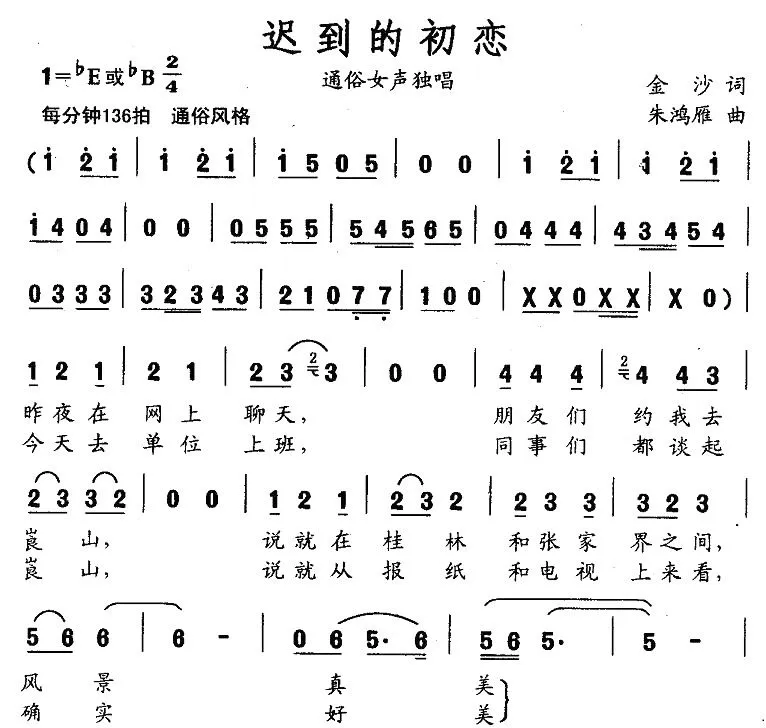 迟到的初恋
1=♭E或♭B 2/4 通俗女声独唱 金沙词
每分钟136拍 通俗风格 朱鸿雁 曲
( i 2 i | i 2 i | i 5 0 5 | 0 0 | i 2 i | i 2 i |
i 4 0 4 | 0 0 | 0 5 5 5 | 5 4 5 6 5 | 0 4 4 4 | 4 3 4 5 4 |
0 3 3 3 | 3 2 3 4 3 | 2 1 0 7 7 | 1 0 0 | X X 0 X X | X 0 ) |
1 2 1 | 2 1 | 2 3 2 3 | 0 0 | 4 4 4 | 2 4 4 3 |
昨夜在 网上 聊天, 朋友们 约我去
今天去 单位 上班, 同事们 都谈起
2 3 3 2 | 0 0 | 1 2 1 | 2 3 2 | 2 3 3 | 3 2 3 |
崀山, 说就在 桂林 和张家 界之间,
崀山, 说就从 报纸 和电视 上来看,
5 6 6 | 6 - | 0 6 5· 6 | 5 6 5· | 5 - |
风景 真 美
确实 好 美